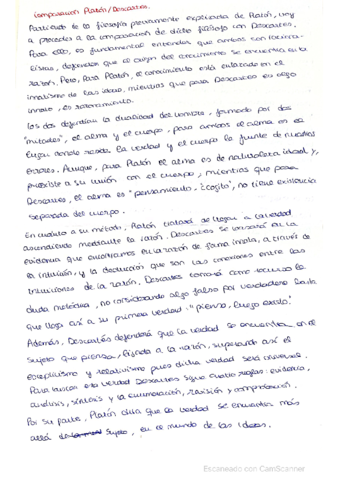 Comparación Platón/Descartes.
Partiendo de la filosofía previamente explicada de Platón, voy
a proceder a la comparación de dicho filósofo con Descartes.
Para ello, es fundamental entender que ambos son raciona-
listas, defienden que el origen del conocimiento se encuentra en la
razón. Pero, para Platón, el conocimiento está enfocado en el
innatismo de las ideas, mientras que para Descartes es algo
innato,
Los dos defendían la dualidad del hombre, formado por dos
"mitades", el alma y el cuerpo, para ambos el alma es el
lugar donde reside la verdad y el cuerpo la fuente de nuestros
errores. Aunque, para Platón el alma es de naturaleza ideal y,
preexiste a su unión con el cuerpo, mientras que para
Descartes, el alma es "pensamiento", "cogito", no tiene existencia
separada del cuerpo.
En cuanto a su método, Platón tratará de llegar a la verdad
ascendiendo mediante la razón. Descartes se basará en la
evidencia que encontramos en la razón de forma innata, a través de
la intuición, y la deducción que son las conexiones entre las
intuiciones de la razón. Descartes tomará como recurso la
duda metódica, no considerando algo falso por verdadero hasta
que llega así a su primera verdad: "pienso, luego existo".
Además, Descartes defenderá que la verdad se encuentra en el
sujeto que piensa, sujeto a la razón, superando así el
escepticismo y relativismo pues dicha verdad será universal.
Para buscar esta verdad Descartes sigue cuatro reglas: evidencia,
análisis, síntesis y la enumeración, revisión y comprobación.
Por su parte, Platón dirá que la verdad se encuentra más
allá del sujeto, en el mundo de las Ideas.
Escaneado con CamScanner